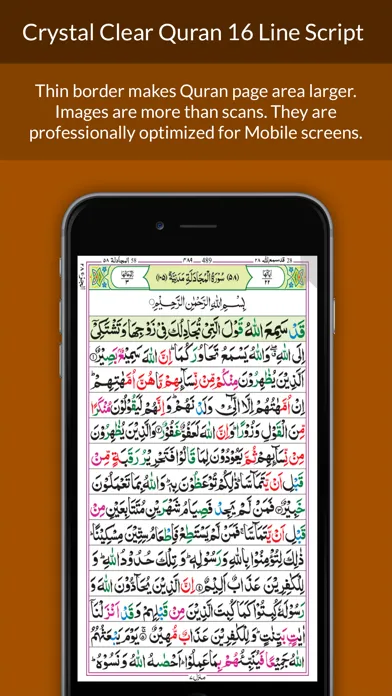 Crystal Clear Quran 16 Line Script
Thin border makes Quran page area larger.
Images are more than scans. They are
professionally optimized for Mobile screens.
28 قد سمع الله ٢٨ 489 المجادلة ٥٨ 58
اٰيَاتُهَا ٢٢ (٥٨) سُوْرَةُ الْمُجَادَلَةِ مَدَنِيَّةٌ (١٠٥) رُكُوْعَاتُهَا ٣
بِسْمِ اللّٰهِ الرَّحْمٰنِ الرَّحِيْمِ
قَدْ سَمِعَ اللّٰهُ قَوْلَ الَّتِيْ تُجَادِلُكَ فِيْ زَوْجِهَا وَ تَشْتَكِيْۤ
اِلَى اللّٰهِ ۖ وَ اللّٰهُ يَسْمَعُ تَحَاوُرَكُمَا ؕ اِنَّ اللّٰهَ سَمِيْعٌۢ بَصِيْرٌ ﴿١﴾
اَلَّذِيْنَ يُظٰهِرُوْنَ مِنْكُمْ مِّنْ نِّسَآئِهِمْ مَّا هُنَّ اُمَّهٰتِهِمْ ؕ
اِنْ اُمَّهٰتُهُمْ اِلَّا الّٰٓـِٔيْ وَلَدْنَهُمْ ؕ وَ اِنَّهُمْ لَيَقُوْلُوْنَ مُنْكَرًا
مِّنَ الْقَوْلِ وَ زُوْرًا ؕ وَ اِنَّ اللّٰهَ لَعَفُوٌّ غَفُوْرٌ ﴿٢﴾ وَ الَّذِيْنَ يُظٰهِرُوْنَ
مِنْ نِّسَآئِهِمْ ثُمَّ يَعُوْدُوْنَ لِمَا قَالُوْا فَتَحْرِيْرُ رَقَبَةٍ مِّنْ
قَبْلِ اَنْ يَّتَمَآسَّا ؕ ذٰلِكُمْ تُوْعَظُوْنَ بِهٖ ؕ وَ اللّٰهُ بِمَا تَعْمَلُوْنَ
خَبِيْرٌ ﴿٣﴾ فَمَنْ لَّمْ يَجِدْ فَصِيَامُ شَهْرَيْنِ مُتَتَابِعَيْنِ مِنْ
قَبْلِ اَنْ يَّتَمَآسَّا ۚ فَمَنْ لَّمْ يَسْتَطِعْ فَاِطْعَامُ سِتِّيْنَ مِسْكِيْنًا ؕ
ذٰلِكَ لِتُؤْمِنُوْا بِاللّٰهِ وَ رَسُوْلِهٖ ؕ وَ تِلْكَ حُدُوْدُ اللّٰهِ ؕ وَ
لِلْكٰفِرِيْنَ عَذَابٌ اَلِيْمٌ ﴿٤﴾ اِنَّ الَّذِيْنَ يُحَآدُّوْنَ اللّٰهَ وَ
رَسُوْلَهٗ كُبِتُوْا كَمَا كُبِتَ الَّذِيْنَ مِنْ قَبْلِهِمْ وَ قَدْ اَنْزَلْنَاۤ
اٰيٰتٍۢ بَيِّنٰتٍ ؕ وَ لِلْكٰفِرِيْنَ عَذَابٌ مُّهِيْنٌ ﴿٥﴾ يَوْمَ يَبْعَثُهُمُ
اللّٰهُ جَمِيْعًا فَيُنَبِّئُهُمْ بِمَا عَمِلُوْا ؕ اَحْصٰىهُ اللّٰهُ وَ نَسُوْهُ ؕ